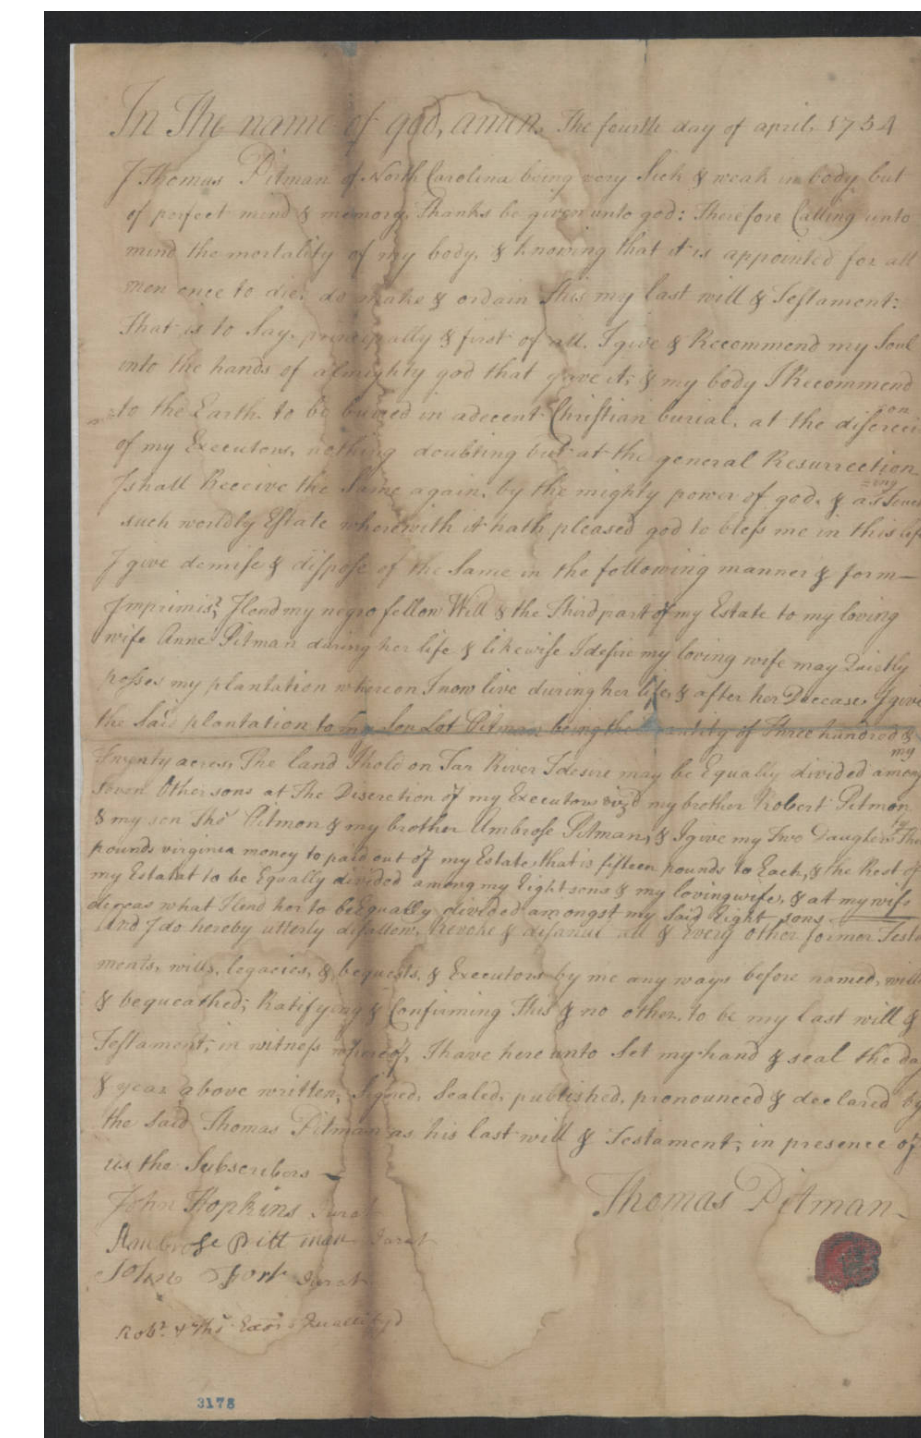 In The name of god, amen. The fourth day of april. 1754
I Thomas Pitman of North Carolina being very Sick & weak in body, but
of perfect mind & memory, Thanks be given unto god: Therefore Calling unto
mind the mortality of my body, & knowing that it is appointed for all
men once to die, do make & ordain this my last will & Testament:
That is to Say, principally & first of all, I give & Recommend my Soul
into the hands of almighty god that gave it; & my body I Recommend
to the Earth, to be buried in a decent Christian burial, at the discreti
on
of my Executors, nothing doubting but at the general Resurrection
I shall Receive the Same again, by the mighty power of god. & as Touch
=ing
such worldly Estate wherewith it hath pleased god to bless me in this life
I give demise & dispose of the Same in the following manner & form—
Imprimis, I lend my negro fellow Will & the Third part of my Estate to my loving
wife Anne Pitman during her life & likewise I desire my loving wife may Quietly
posses my plantation whereon I now live during her life, & after her Decease, I give
the Said plantation to my Son Lot Pitman being the quantity of Three hundred &
Twenty acres, The land I hold on Tar River I desire may be Equally divided among
my
Seven Other sons at The Discretion of my Executors vizd my brother Robert Pitman
& my son Thos Pitman & my brother Ambrose Pitman, & I give my Two Daughters
pounds virginia money to paid out of my Estate, that is fifteen pounds to Each, & the Rest of
my Estatat to be Equally divided among my Eight sons & my loving wife, & at my wifs
deceas what I lend her to be Equally divided amongst my Said Eight sons
And I do hereby utterly disallow, Revoke & disanul all & Every other former Testa
ments, wills, legacies, & bequests, & Executors by me any ways before named, will
& bequeathed; Ratifying & Confirming This & no other, to be my Last will &
Testament; in witness whereof, I have here unto Set my hand & seal the day
& year above written, Signed, Sealed, published, pronounced & declared by
the Said Thomas Pitman as his last will & Testament; in presence of
us the Subscribers
Thomas Pitman
John Hopkins Jurat
Ambrose Pittman Jurat
John Fort Jurat
Robt & Thos Exors Qualifyd
3178